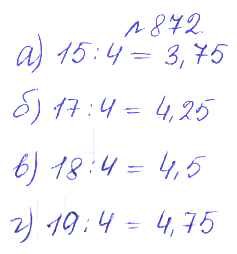 № 872.
а) 15 : 4 = 3,75
б) 17 : 4 = 4,25
в) 18 : 4 = 4,5
г) 19 : 4 = 4,75